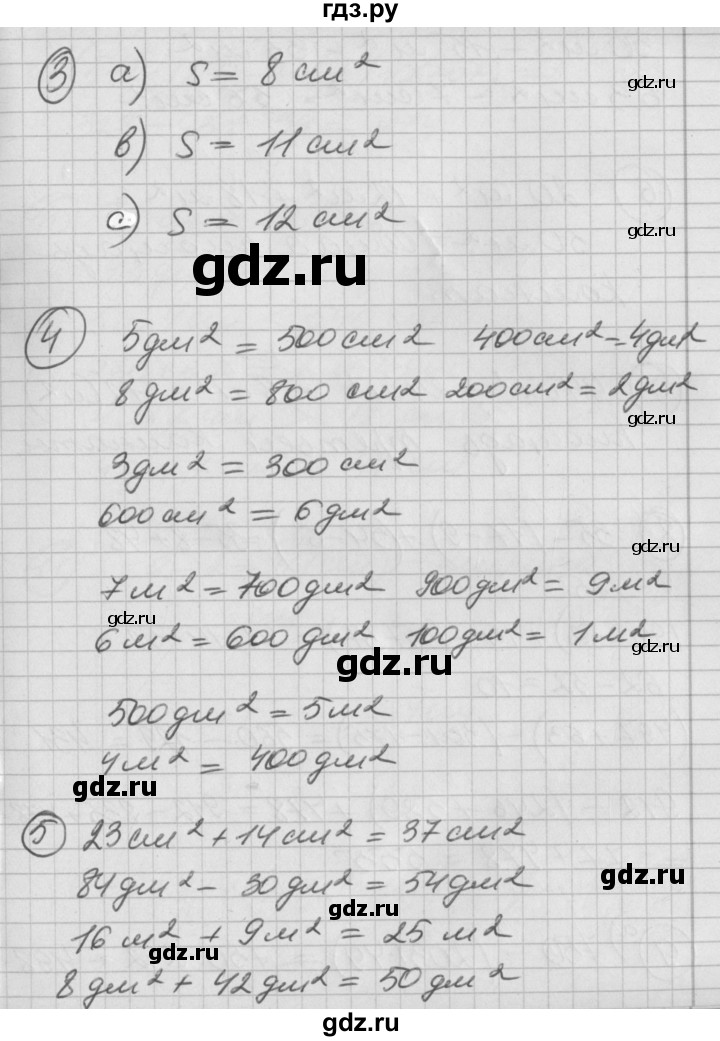 гдз.ру
3 а) S = 8 см²
gdz.ru
в) S = 11 см²
с) S = 12 см²
gdz.ru
gdz.ru
4 5 дм² = 500 см² 400 см² = 4 дм²
gdz.ru
8 дм² = 800 см² 200 см² = 2 дм²
gdz.ru
3 дм² = 300 см²
600 см² = 6 дм²
gdz.ru
7 м² = 700 дм² 900 дм² = 9 м²
gdz.ru
6 м² = 600 дм² 100 дм² = 1 м²
gdz.ru
gdz.ru
500 дм² = 5 м²
4 м² = 400 дм²
gdz.ru
5 23 см² + 14 см² = 37 см²
84 дм² - 30 дм² = 54 дм²
gdz.ru
gdz.ru
16 м² + 9 м² = 25 м²
8 дм² + 42 дм² = 50 дм²
gdz.ru